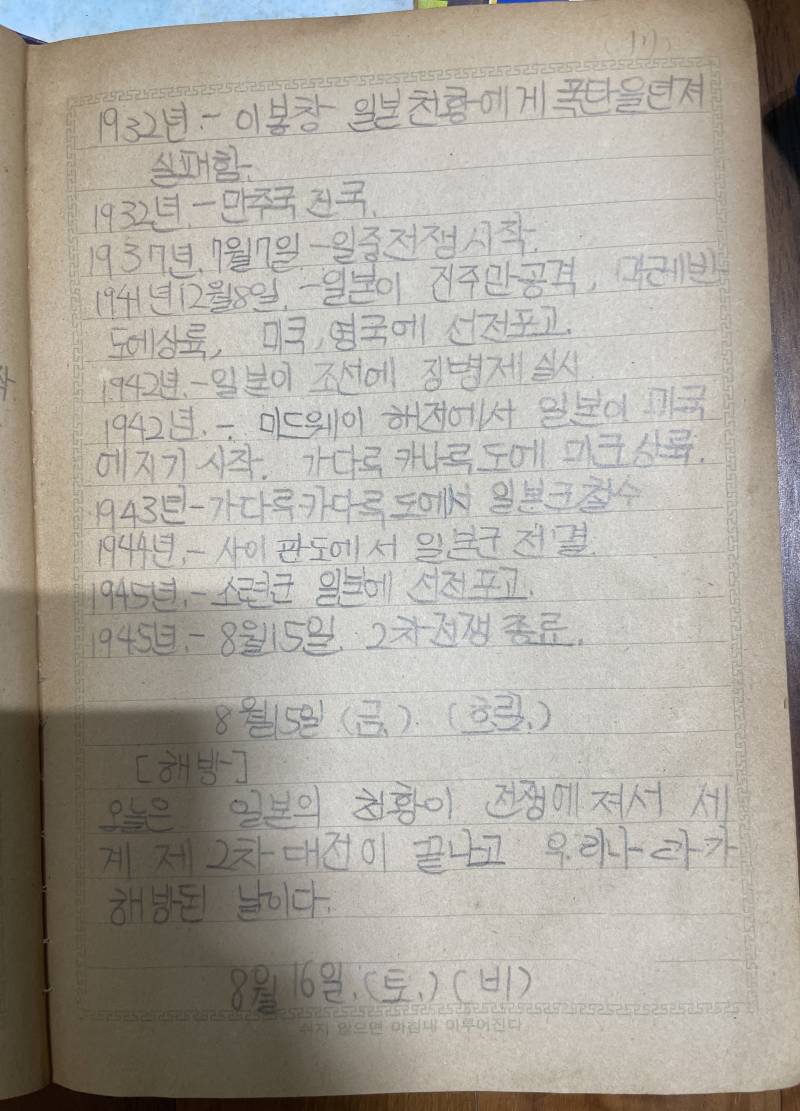 (17)
1932년.- 이봉창 일본천황에게 폭탄을던져
실패함.
1932년.- 만주국 건국.
1937년. 7월7일 - 일중전쟁시작.
1941년12월8일. - 일본이 진주만공격,
도에상륙, 미국, 영국에 선전포고.
1942년.- 일본이 조선에 징병제 실시
1942년.-. 미드웨이 해전에서 일본이 미국
에지기 시작. 가다루카나루도에 미군상륙.
1943년- 가다루카다루도에서 일본군철수
1944년.- 사이판도에서 일본군 전결.
1945년.- 소련군 일본에 선전포고.
1945년.- 8월15일. 2차전쟁종료.
8월15일 (금.). (흐림.)
[해방]
오늘은 일본의 천황이 전쟁에져서 세
계 제 2차대전이 끝나고 우리나라가
해방된 날이다.
8월16일.(토.) (비)
쉬지 않으면 마침내 이루어진다